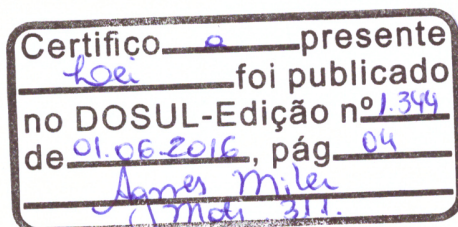 Certifico a presente
Lei foi publicado
no DOSUL-Edição nº 1.344
de 01.06.2016, pág 04
Agnes
311.